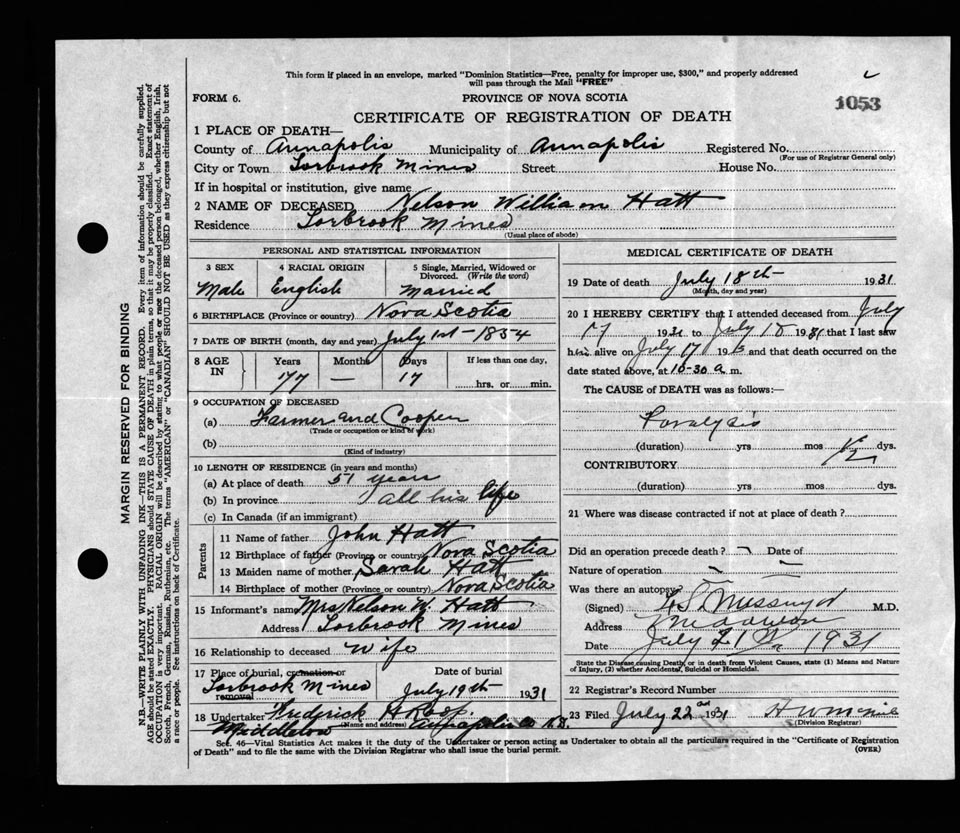 This form if placed in an envelope, marked "Dominion Statistics—Free, penalty for improper use, $300," and properly addressed
will pass through the Mail "FREE"
1053
FORM 6.
PROVINCE OF NOVA SCOTIA
CERTIFICATE OF REGISTRATION OF DEATH
1 PLACE OF DEATH—
County of Annapolis Municipality of Annapolis Registered No.
(For use of Registrar General only)
City or Town Torbrook Mines Street House No.
If in hospital or institution, give name
2 NAME OF DECEASED Nelson William Hatt
Residence Torbrook Mines
(Usual place of abode)
PERSONAL AND STATISTICAL INFORMATION
3 SEX 4 RACIAL ORIGIN 5 Single, Married, Widowed or Divorced. (Write the word)
Male English Married
6 BIRTHPLACE (Province or country) Nova Scotia
7 DATE OF BIRTH (month, day and year) July 1st - 1854
8 AGE IN Years Months Days If less than one day,
77 — 17 hrs. or min.
9 OCCUPATION OF DECEASED
(a) Farmer and Cooper
(Trade or occupation or kind of work)
(b)
(Kind of industry)
10 LENGTH OF RESIDENCE (in years and months)
(a) At place of death 51 years
(b) In province all his life
(c) In Canada (if an immigrant)
Parents
11 Name of father John Hatt
12 Birthplace of father (Province or country) Nova Scotia
13 Maiden name of mother Sarah Hatt
14 Birthplace of mother (Province or country) Nova Scotia
15 Informant's name Mrs Nelson W. Hatt
Address Torbrook Mines
16 Relationship to deceased Wife
17 Place of burial, cremation or removal Date of burial
Torbrook Mines July 19th 1931
18 Undertaker Fredrick H Roop
(Name and address)
Middleton Annapolis Co N.S.
MEDICAL CERTIFICATE OF DEATH
19 Date of death July 18th 1931
(Month, day and year)
20 I HEREBY CERTIFY that I attended deceased from July
17 1931 to July 18 1931 that I last saw
him alive on July 17 19 and that death occurred on the
date stated above, at 10-30 a m.
The CAUSE of DEATH was as follows:—
Paralysis
(duration) yrs mos 1/2 dys.
CONTRIBUTORY
(duration) yrs. mos. dys.
21 Where was disease contracted if not at place of death?
Did an operation precede death? - Date of
Nature of operation - -
Was there an autopsy
(Signed) M.D.
Address
Date July 21 1931
State the Disease causing Death, or in death from Violent Causes, state (1) Means and Nature
of Injury, (2) whether Accidental, Suicidal or Homicidal.
22 Registrar's Record Number
23 Filed July 22nd 1931
(Division Registrar)
Sec. 46—Vital Statistics Act makes it the duty of the Undertaker or person acting as Undertaker to obtain all the particulars required in the "Certificate of Registration
of Death" and to file the same with the Division Registrar who shall issue the burial permit.
(OVER)
MARGIN RESERVED FOR BINDING
N.B.—WRITE PLAINLY WITH UNFADING INK—THIS IS A PERMANENT RECORD. Every item of information should be carefully supplied.
AGE should be stated EXACTLY. PHYSICIANS should STATE CAUSE OF DEATH in plain terms, so that it may be properly classified. Exact statement of
OCCUPATION is very important. RACIAL ORIGIN will be described by stating to what people or race the deceased person belonged, whether English, Irish,
Scotch, French, German, Russian, Ruthenian, etc. The terms "AMERICAN" or "CANADIAN" SHOULD NOT BE USED as they express citizenship but not
a race or people. See instructions on back of Certificate.